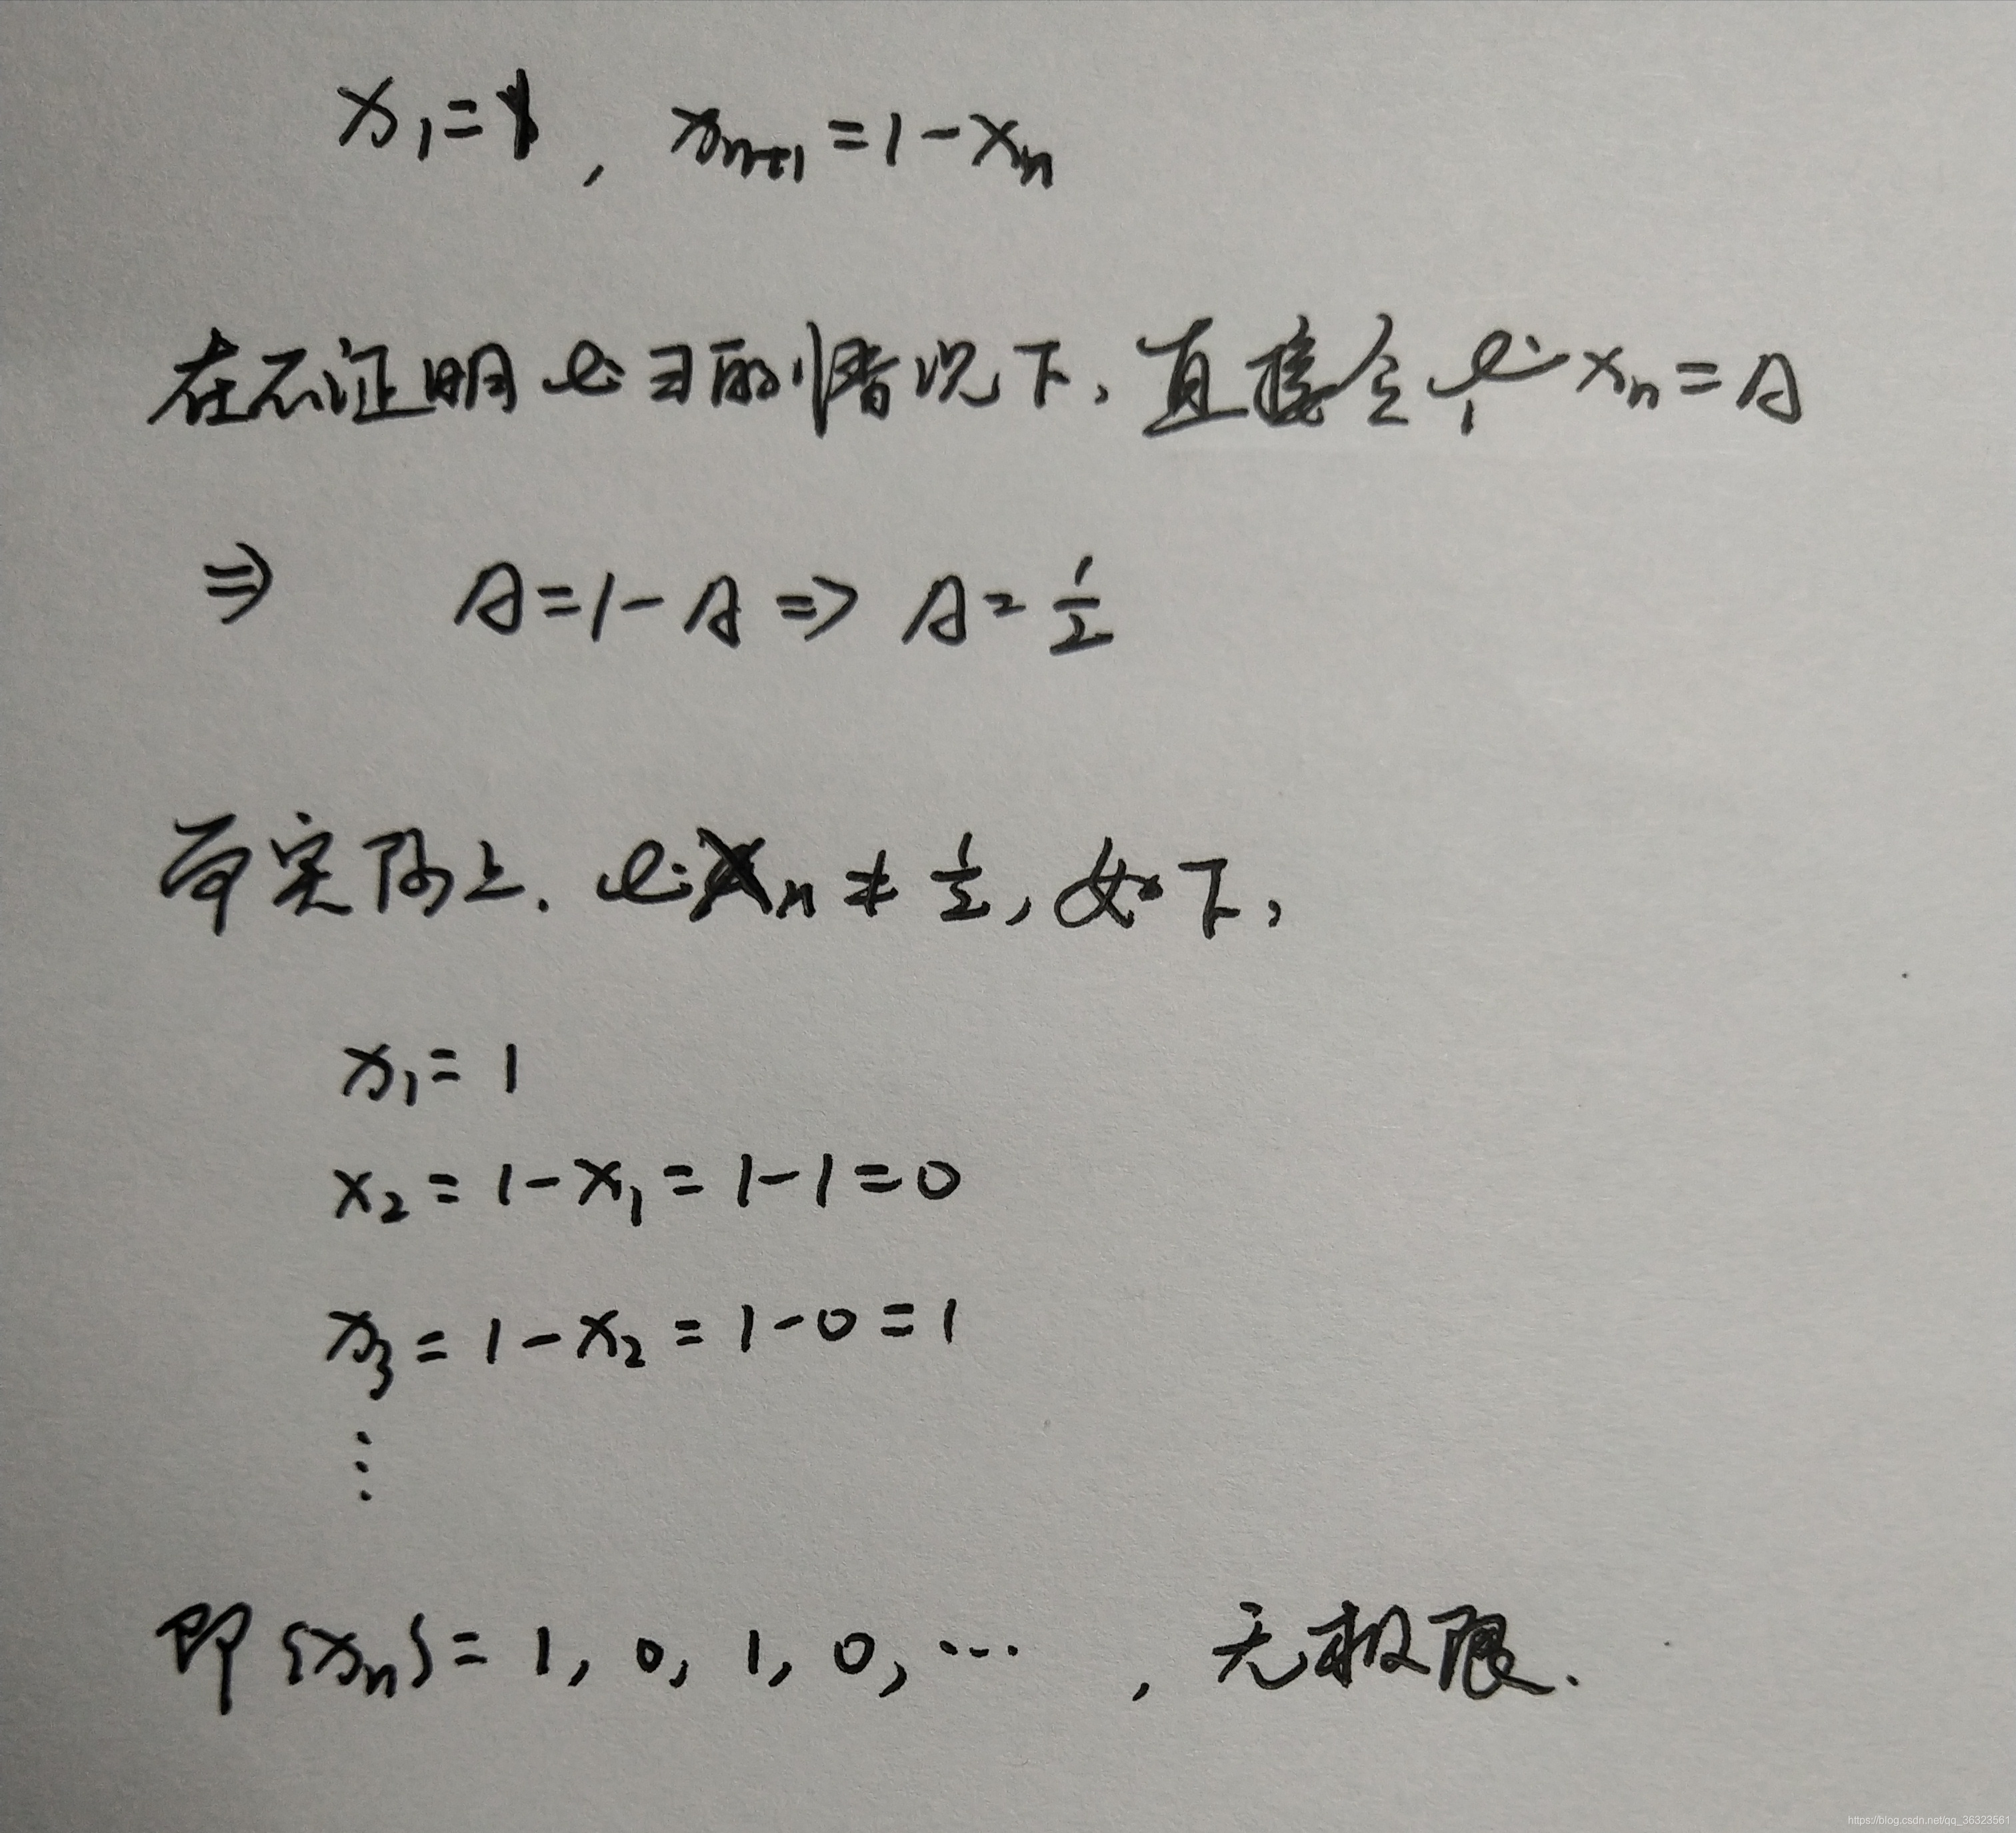 x₁=1, xₙ₊₁=1-xₙ
在不证明lim∃的情况下,直接令lim xₙ=A
⇒ A=1-A⇒A=1/2
而实际上,lim xₙ≠1/2,如下,
x₁=1
x₂=1-x₁=1-1=0
x₃=1-x₂=1-0=1
⋮
即{xₙ}=1,0,1,0,⋯,无极限.
https://blog.csdn.net/qq_36323561